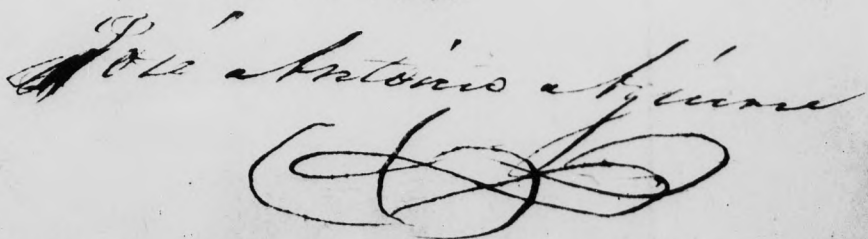 José António Aguirre